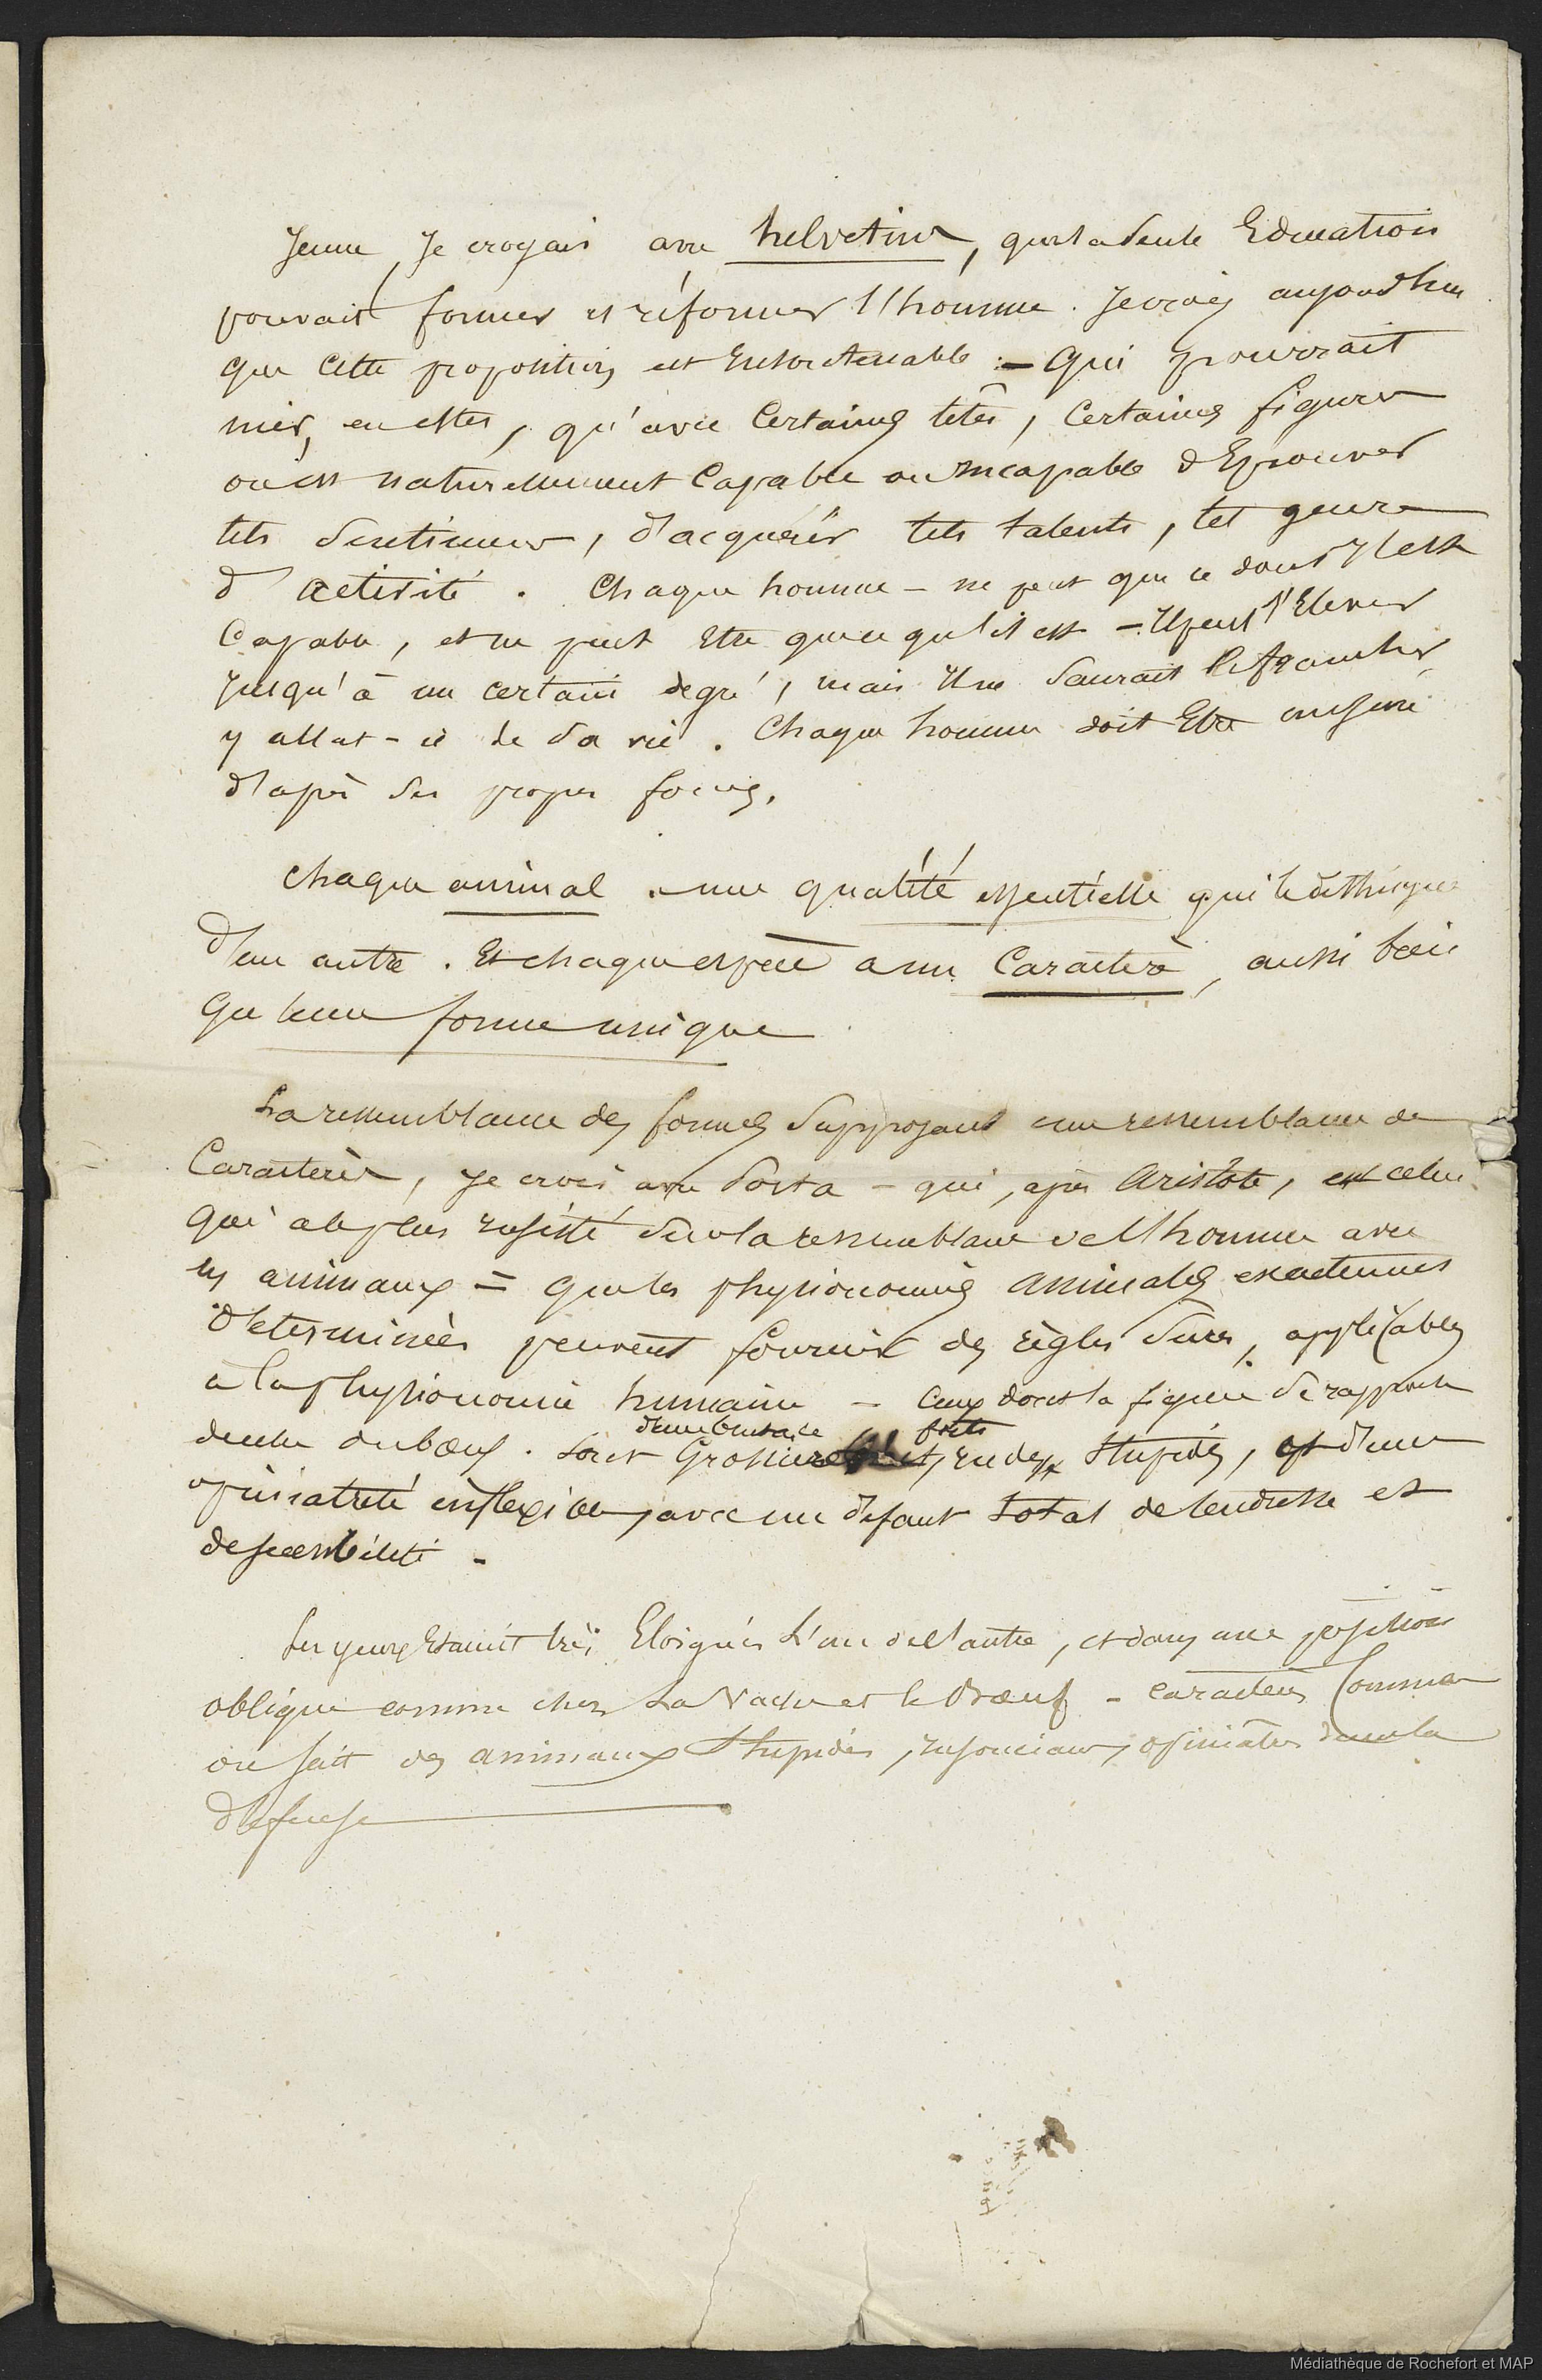 Jeune, Je croyais avec helvetius, que la seule Education
pouvait former et réformer l'homme. Je crois aujourd'hui
que cette proposition est Insoutenable :- Qui pourrait
nier, en effet, qu'avec Certaines têtes, Certaines figures
on est naturellement Capable ou Incapable d'Eprouver
tels sentimens, d'acquérir tels talents, tel genre
d'activité. Chaque homme - ne peut que ce dont Il est
Capable, et ne peut Etre que ce qu'il est - Il peut s'Elever
jusqu'à un certain degré, mais Il ne saurait le franchir,
y allat-il de sa vie. Chaque homme doit Etre mesuré
d'après ses propres forces.
Chaque animal a une qualité essentielle qui le distingue
d'un autre. Et chaque espèce a un Caractère, aussi bien
qu'une forme unique
La ressemblance des formes supposant une ressemblance de
Caractères, je crois avec Porta - qui, après Aristote, est celui
qui a le plus insisté sur la ressemblance de l'homme avec
les animaux = que les physionomies animales exactement
déterminées peuvent fournir des règles sures, applicables
à la physionomie humaine - Ceux dont la figure se rapproche
de celle du bœuf. sont Grossiers rudes stupides, et d'une
opiniatreté inflexible, avec un défaut total de tendresse et
de sensibilité -
Les yeux Etaient très Eloignés l'un de l'autre, et dans une position
oblique comme chez La Vache et le Bœuf - caractères Comme
on sait des animaux stupides, insouciants, opiniâtres dans la
défense
Médiathèque de Rochefort et MAP